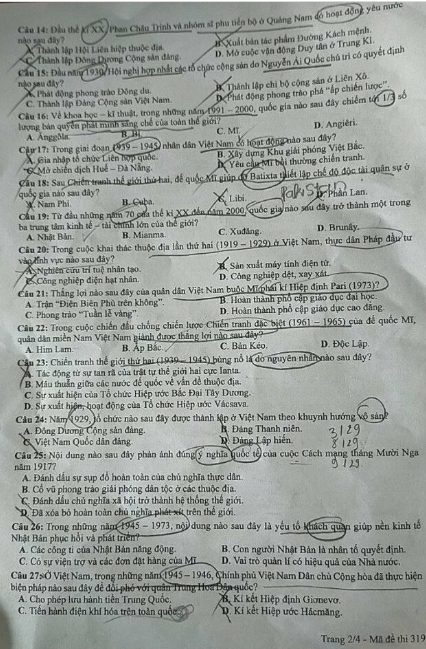 Câu 14: Đầu thế kỉ XX, Phan Châu Trinh và nhóm sĩ phu tiến bộ ở Quảng Nam có hoạt động yêu nước
nào sau đây?
A. Thành lập Hội Liên hiệp thuộc địa. B. Xuất bản tác phẩm Đường Kách mệnh.
C. Thành lập Đông Dương Cộng sản đảng. D. Mở cuộc vận động Duy tân ở Trung Kì.
Câu 15: Đầu năm 1930, Hội nghị hợp nhất các tổ chức cộng sản do Nguyễn Ái Quốc chủ trì có quyết định
nào sau đây?
A. Phát động phong trào Đông du. B. Thành lập chi bộ cộng sản ở Liên Xô.
C. Thành lập Đảng Cộng sản Việt Nam. D. Phát động phong trào phá "ấp chiến lược".
Câu 16: Về khoa học – kĩ thuật, trong những năm 1991 – 2000, quốc gia nào sau đây chiếm tới 1/3 số
lượng bản quyền phát minh sáng chế của toàn thế giới?
A. Anggôla. B. Bỉ. C. Mĩ. D. Angiêri.
Câu 17: Trong giai đoạn (1939 – 1945), nhân dân Việt Nam có hoạt động nào sau đây?
A. Gia nhập tổ chức Liên hợp quốc. B. Xây dựng Khu giải phóng Việt Bắc.
C. Mở chiến dịch Huế – Đà Nẵng. D. Yêu cầu Mĩ bồi thường chiến tranh.
Câu 18: Sau Chiến tranh thế giới thứ hai, đế quốc Mĩ giúp đỡ Batixta thiết lập chế độ độc tài quân sự ở
quốc gia nào sau đây?
A. Nam Phi. B. Cuba. C. Libi. D. Phần Lan.
Câu 19: Từ đầu những năm 70 của thế kỉ XX đến năm 2000, quốc gia nào sau đây trở thành một trong
ba trung tâm kinh tế – tài chính lớn của thế giới?
A. Nhật Bản. B. Mianma. C. Xuđăng. D. Brunây.
Câu 20: Trong cuộc khai thác thuộc địa lần thứ hai (1919 – 1929) ở Việt Nam, thực dân Pháp đầu tư
vào lĩnh vực nào sau đây?
A. Nghiên cứu trí tuệ nhân tạo. B. Sản xuất máy tính điện tử.
C. Công nghiệp điện hạt nhân. D. Công nghiệp dệt, xay xát.
Câu 21: Thắng lợi nào sau đây của quân dân Việt Nam buộc Mĩ phải kí Hiệp định Pari (1973)?
A. Trận "Điện Biên Phủ trên không". B. Hoàn thành phổ cập giáo dục đại học.
C. Phong trào "Tuần lễ vàng". D. Hoàn thành phổ cập giáo dục cao đẳng.
Câu 22: Trong cuộc chiến đấu chống chiến lược Chiến tranh đặc biệt (1961 – 1965) của đế quốc Mĩ,
quân dân miền Nam Việt Nam giành được thắng lợi nào sau đây?
A. Him Lam. B. Ấp Bắc. C. Bản Kéo. D. Độc Lập.
Câu 23: Chiến tranh thế giới thứ hai (1939 – 1945) bùng nổ là do nguyên nhân nào sau đây?
A. Tác động từ sự tan rã của trật tự thế giới hai cực Ianta.
B. Mâu thuẫn giữa các nước đế quốc về vấn đề thuộc địa.
C. Sự xuất hiện của Tổ chức Hiệp ước Bắc Đại Tây Dương.
D. Sự xuất hiện, hoạt động của Tổ chức Hiệp ước Vácsava.
Câu 24: Năm 1929, tổ chức nào sau đây được thành lập ở Việt Nam theo khuynh hướng vô sản?
A. Đông Dương Cộng sản đảng. B. Đảng Thanh niên.
C. Việt Nam Quốc dân đảng. D. Đảng Lập hiến.
Câu 25: Nội dung nào sau đây phản ánh đúng ý nghĩa quốc tế của cuộc Cách mạng tháng Mười Nga
năm 1917?
A. Đánh dấu sự sụp đổ hoàn toàn của chủ nghĩa thực dân.
B. Cổ vũ phong trào giải phóng dân tộc ở các thuộc địa.
C. Đánh dấu chủ nghĩa xã hội trở thành hệ thống thế giới.
D. Đã xóa bỏ hoàn toàn chủ nghĩa phát xít trên thế giới.
Câu 26: Trong những năm 1945 – 1973, nội dung nào sau đây là yếu tố khách quan giúp nền kinh tế
Nhật Bản phục hồi và phát triển?
A. Các công ti của Nhật Bản năng động. B. Con người Nhật Bản là nhân tố quyết định.
C. Có sự viện trợ và các đơn đặt hàng của Mĩ. D. Vai trò quản lí có hiệu quả của Nhà nước.
Câu 27: Ở Việt Nam, trong những năm 1945 – 1946, Chính phủ Việt Nam Dân chủ Cộng hòa đã thực hiện
biện pháp nào sau đây để đối phó với quân Trung Hoa Dân quốc?
A. Cho phép lưu hành tiền Trung Quốc. B. Kí kết Hiệp định Giơnevơ.
C. Tiến hành điện khí hóa trên toàn quốc. D. Kí kết Hiệp ước Hácmăng.
Trang 2/4 - Mã đề thi 319